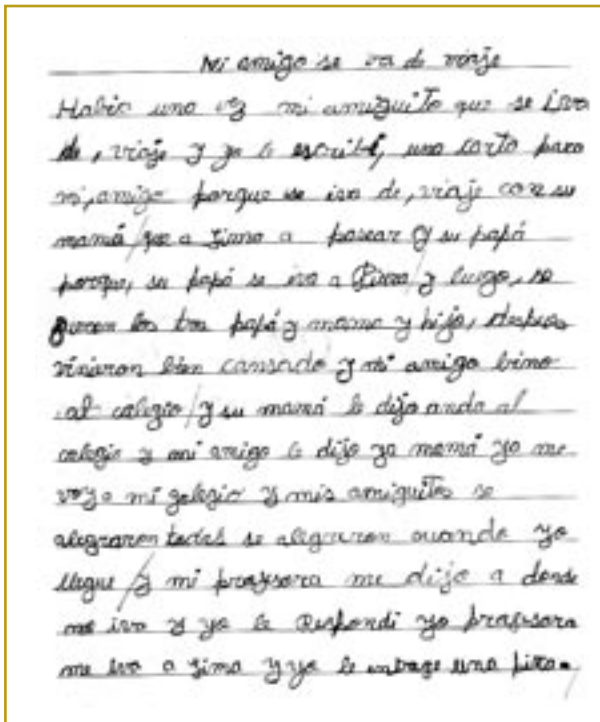 mi amigo se va de viaje
Habia una vez mi amiguito que se iva
de, viaje y yo le escribí, una carta para
mi, amigo porque se iva de, viaje con su
mamá / que a Lima a pasear y su papá
porque, su papá se iva a Piura / y luego, se
fueron los tres papá y mama y hijo, despues
viniaron bien cansado y mi amigo bino
al colegio / y su mamá le dijo anda al
colegio y mi amigo le dijo ya mamá ya me
voy a mi golegio y mis amiguitos se
alegraron todos se alegraron cuando yo
llegue / y mi profesora me dijo a donde
me iva y yo le Respondi yo profesora
me iva a Lima y yo le entrege una